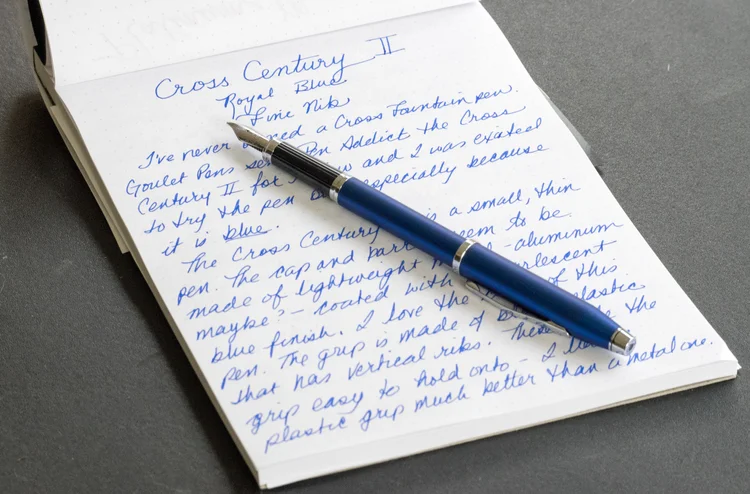 Cross Century II
Royal Blue
Fine Nib
I've never a Cross Fountain pen.
Goulet Pens Pen Addict the Cross
Century II for and I was excited
to try the pen especially because
it is blue.
The Cross Century is a small, thin
pen. The cap and seem to be
made of lightweight -aluminum
maybe? - coated with
blue finish. I love the of this
pen. The grip is made of plastic
that has vertical ribs. the
grip easy to hold onto - I
plastic grip much better than a metal one.